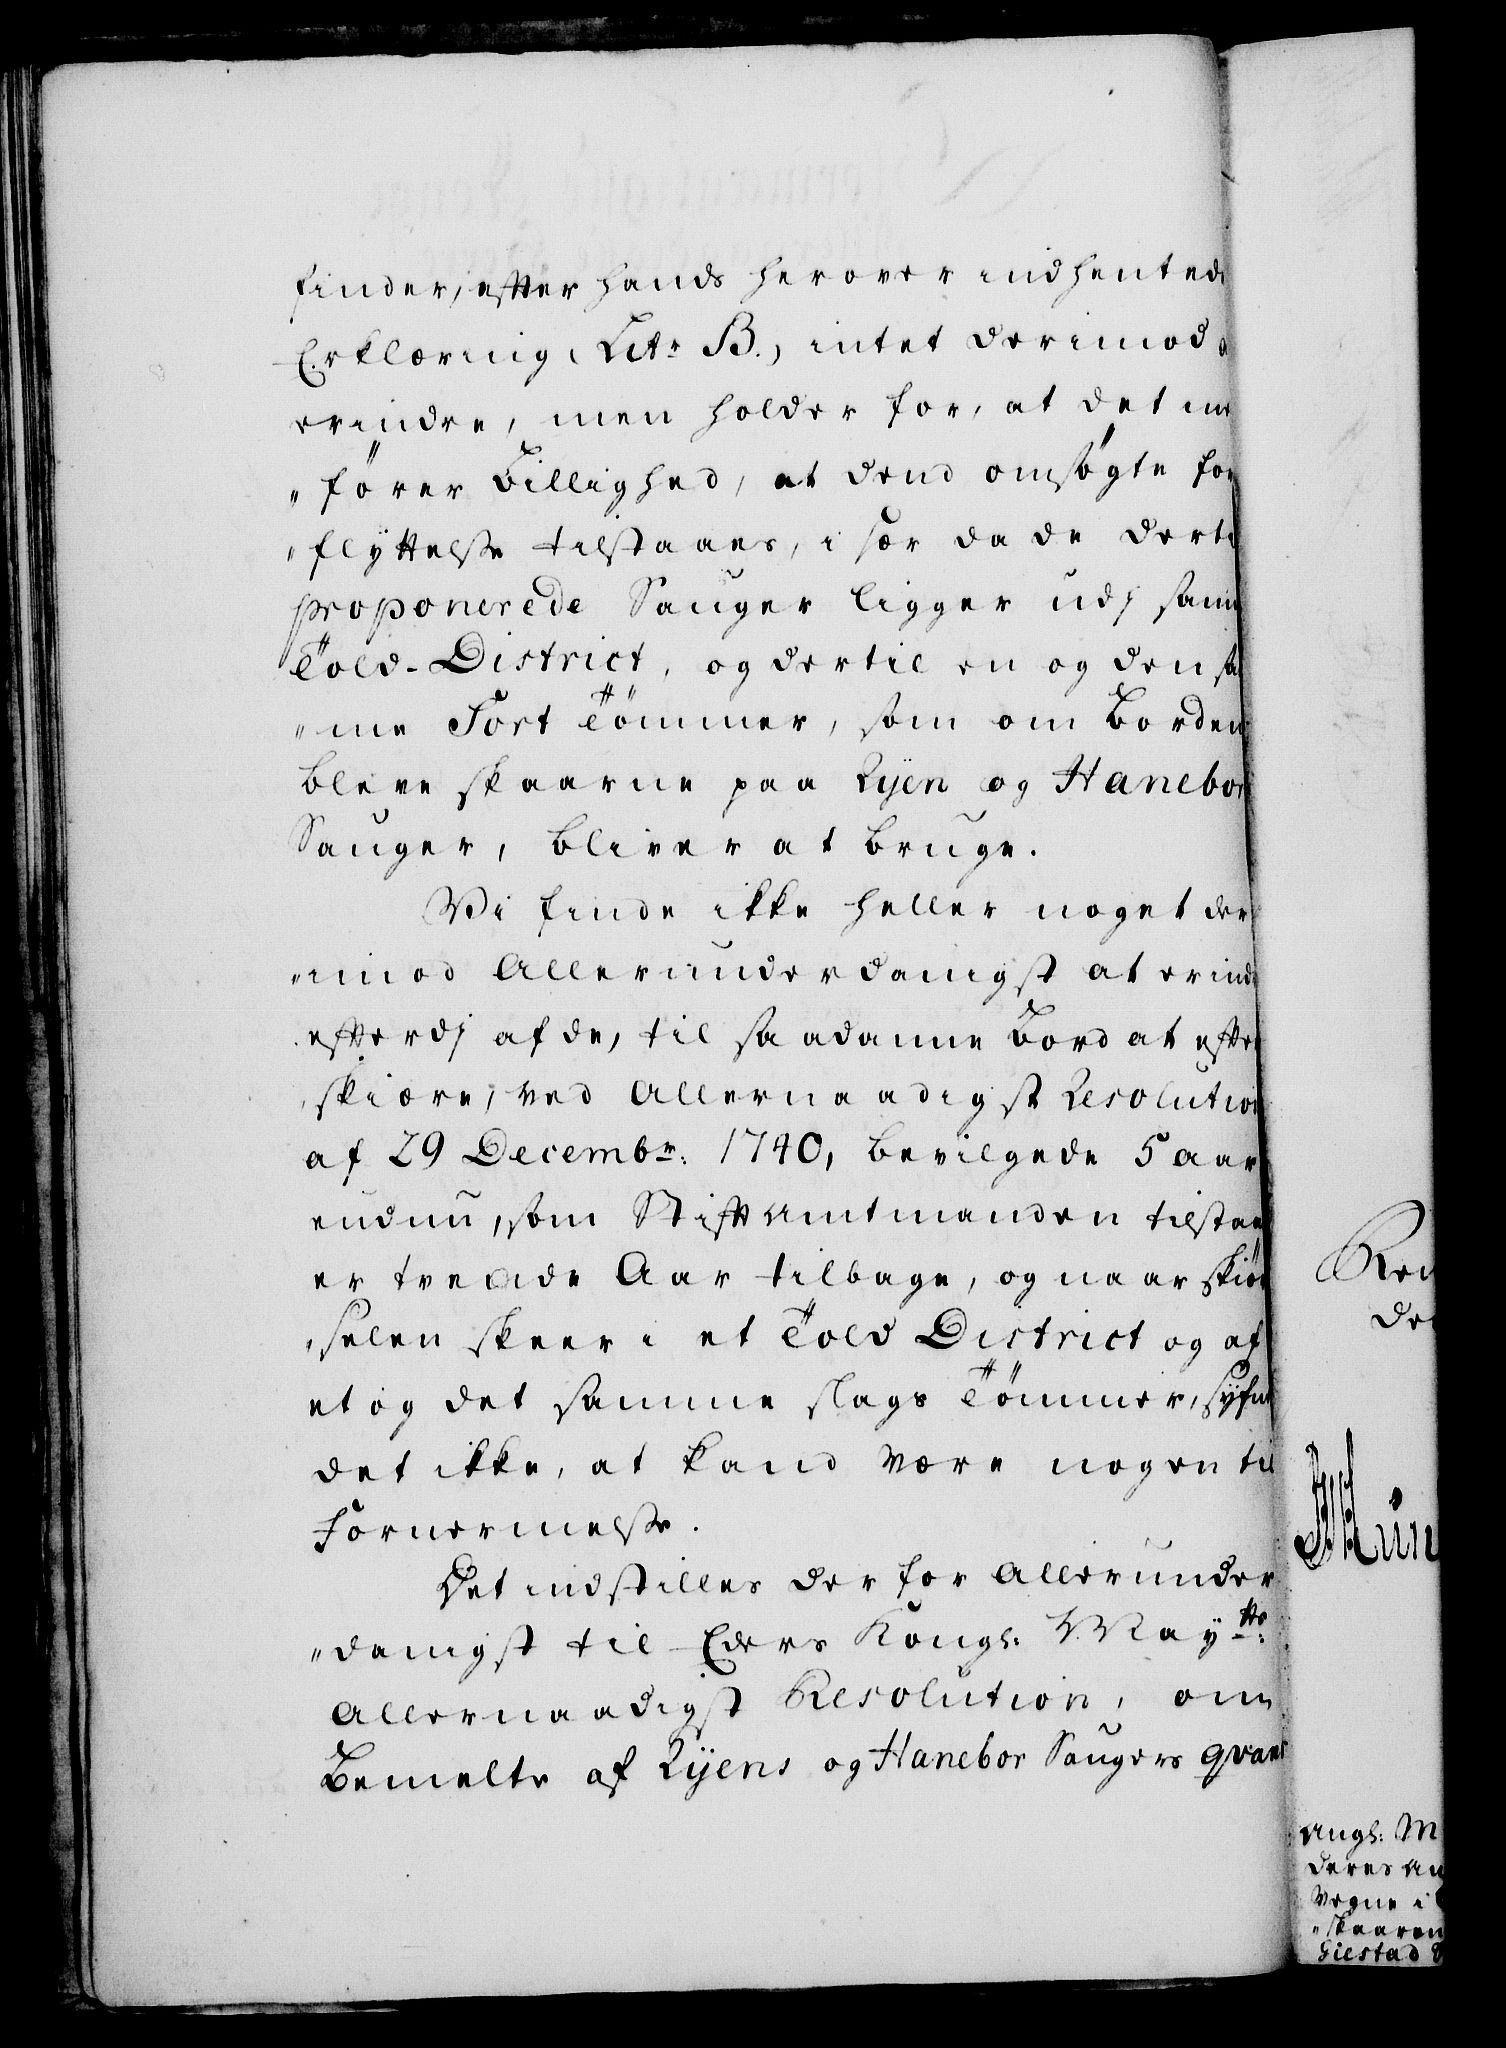 finder, efter hands herover indhentede
Erklæring, Litr B., intet derimod
erindre, men holder for, at det med
"fører Billighed, at dend omsøgte for
"flyttelse tilstaaes, i sær da de dertil
proponerede Sauger ligger udj samme
Told-District, og dertil en og den sa
"me Sort Tömmer, som om Borden
bleve skaarne paa Ryen og Hanebor
Sauger, bliver at bruge.
Vi finde ikke heller noget der
"imod Allerunderdanigst at erindre
efterdj af de, til saadanne Bord at efter
"skiære, ved Allernaadigst Resolution
af 29 Decembr: 1740, bevilgede 5 Aar
endnu, som Stiftamtmanden tilstaaer
er trende Aar tilbage, og naar skiør
"selen skeer i et Told District og af
et og det samme slags Tömmer, syfnes
det ikke, at kand være nogen til
Fornermelse.
Det indstilles derfor Allerunder
"danigst til Eders Kongl: Mayts:
Allernaadigst Resolution, om
Bemelte af Ryens og Hanebor Saugers qvan
Ren
de
Mün
angl: M
deres An
Vegne i
"skaaren
Giestad